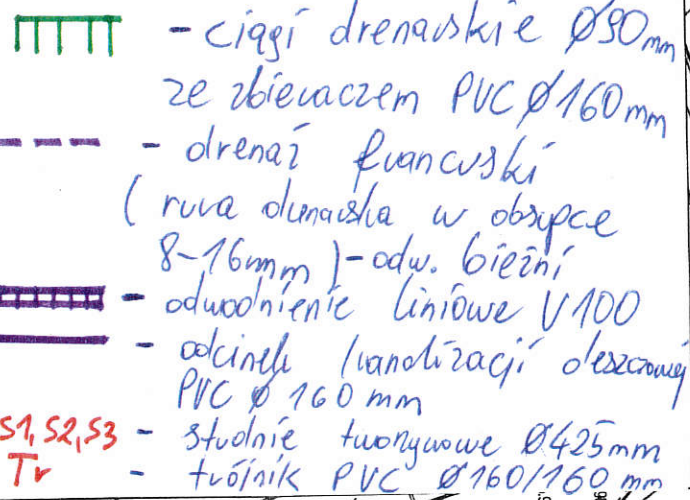 - ciągi drenarskie Ø90mm
ze zbieraczem PVC Ø160mm
- drenaż francuski
( rura drenarska w obsypce
8-16mm ) - odw. bieżni
- odwodnienie liniowe V100
- odcinek kanalizacji deszczowej
PVC Ø 160 mm
S1, S2, S3 - studnie tworzywowe Ø425mm
Tr - trójnik PVC Ø160/160 mm